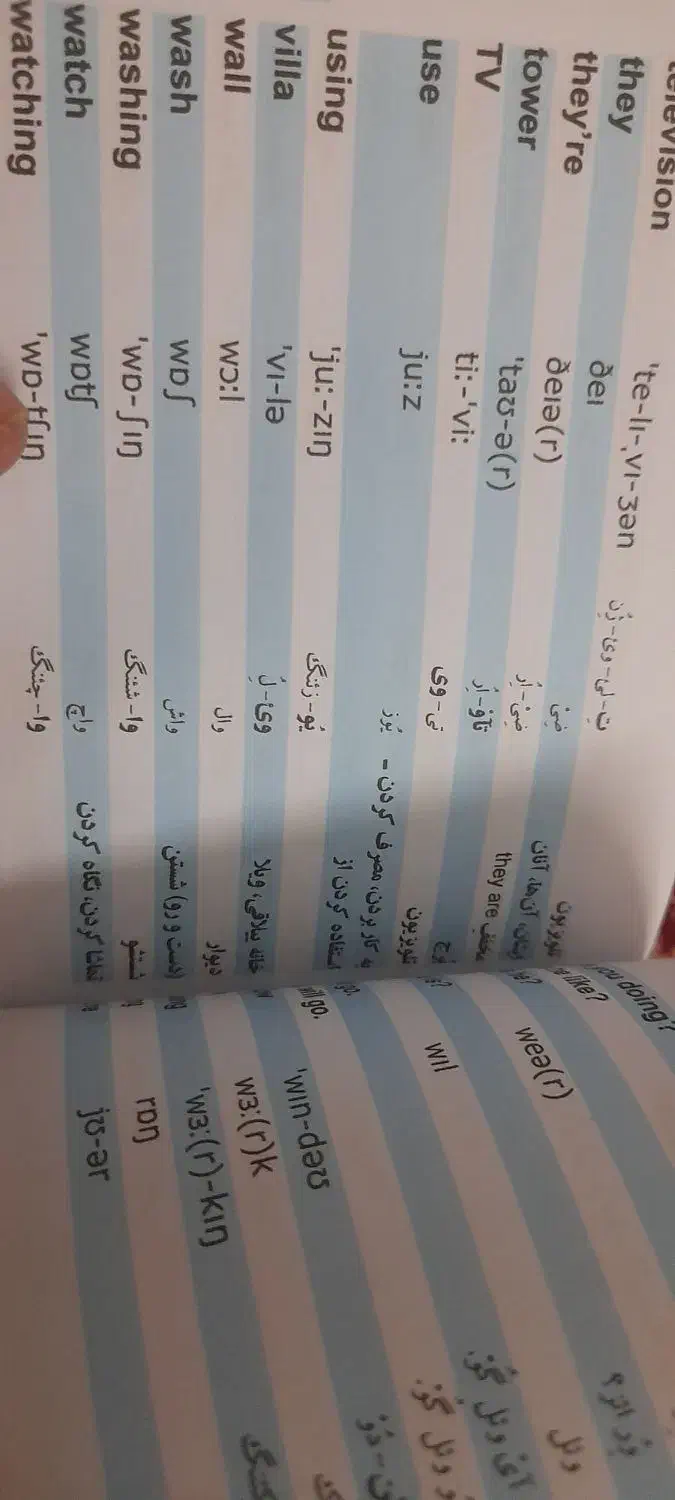 television 'te-lɪ-ˌvɪ-ʒən تِ-لیٔ-ویٔ-ژِن تلویزیون
they ðeɪ ضِیْ ایشان، آن‌ها، آنان
they're ðeɪə(r) ضِیْ-اِر مخفف they are
tower 'taʊ-ə(r) تاَوْ-اِر برج
TV ti:-'vi: تی-وی تلویزیون
use ju:z یُوز به کار بردن، مصرف کردن-
استفاده کردن از
using 'ju:-zɪŋ یُو-زیٔنگ
villa 'vɪ-lə ویٔ-لِ خانه ییلاقی، ویلا
wall wɔ:l وال دیوار
wash wɒʃ واش (دست و رو) شستن
washing 'wɒ-ʃɪŋ وا-شیٔنگ شستشو
watch wɒtʃ واچ تماشا کردن، نگاه کردن
watching 'wɒ-tʃɪŋ وا-چیٔنگ
you doing?
like?
weə(r)
wɪl ویٔل
will go.
go.
'wɪn-dəʊ
wɜ:(r)k
'wɜ:(r)-kɪŋ
rɒŋ
jʊ-ər